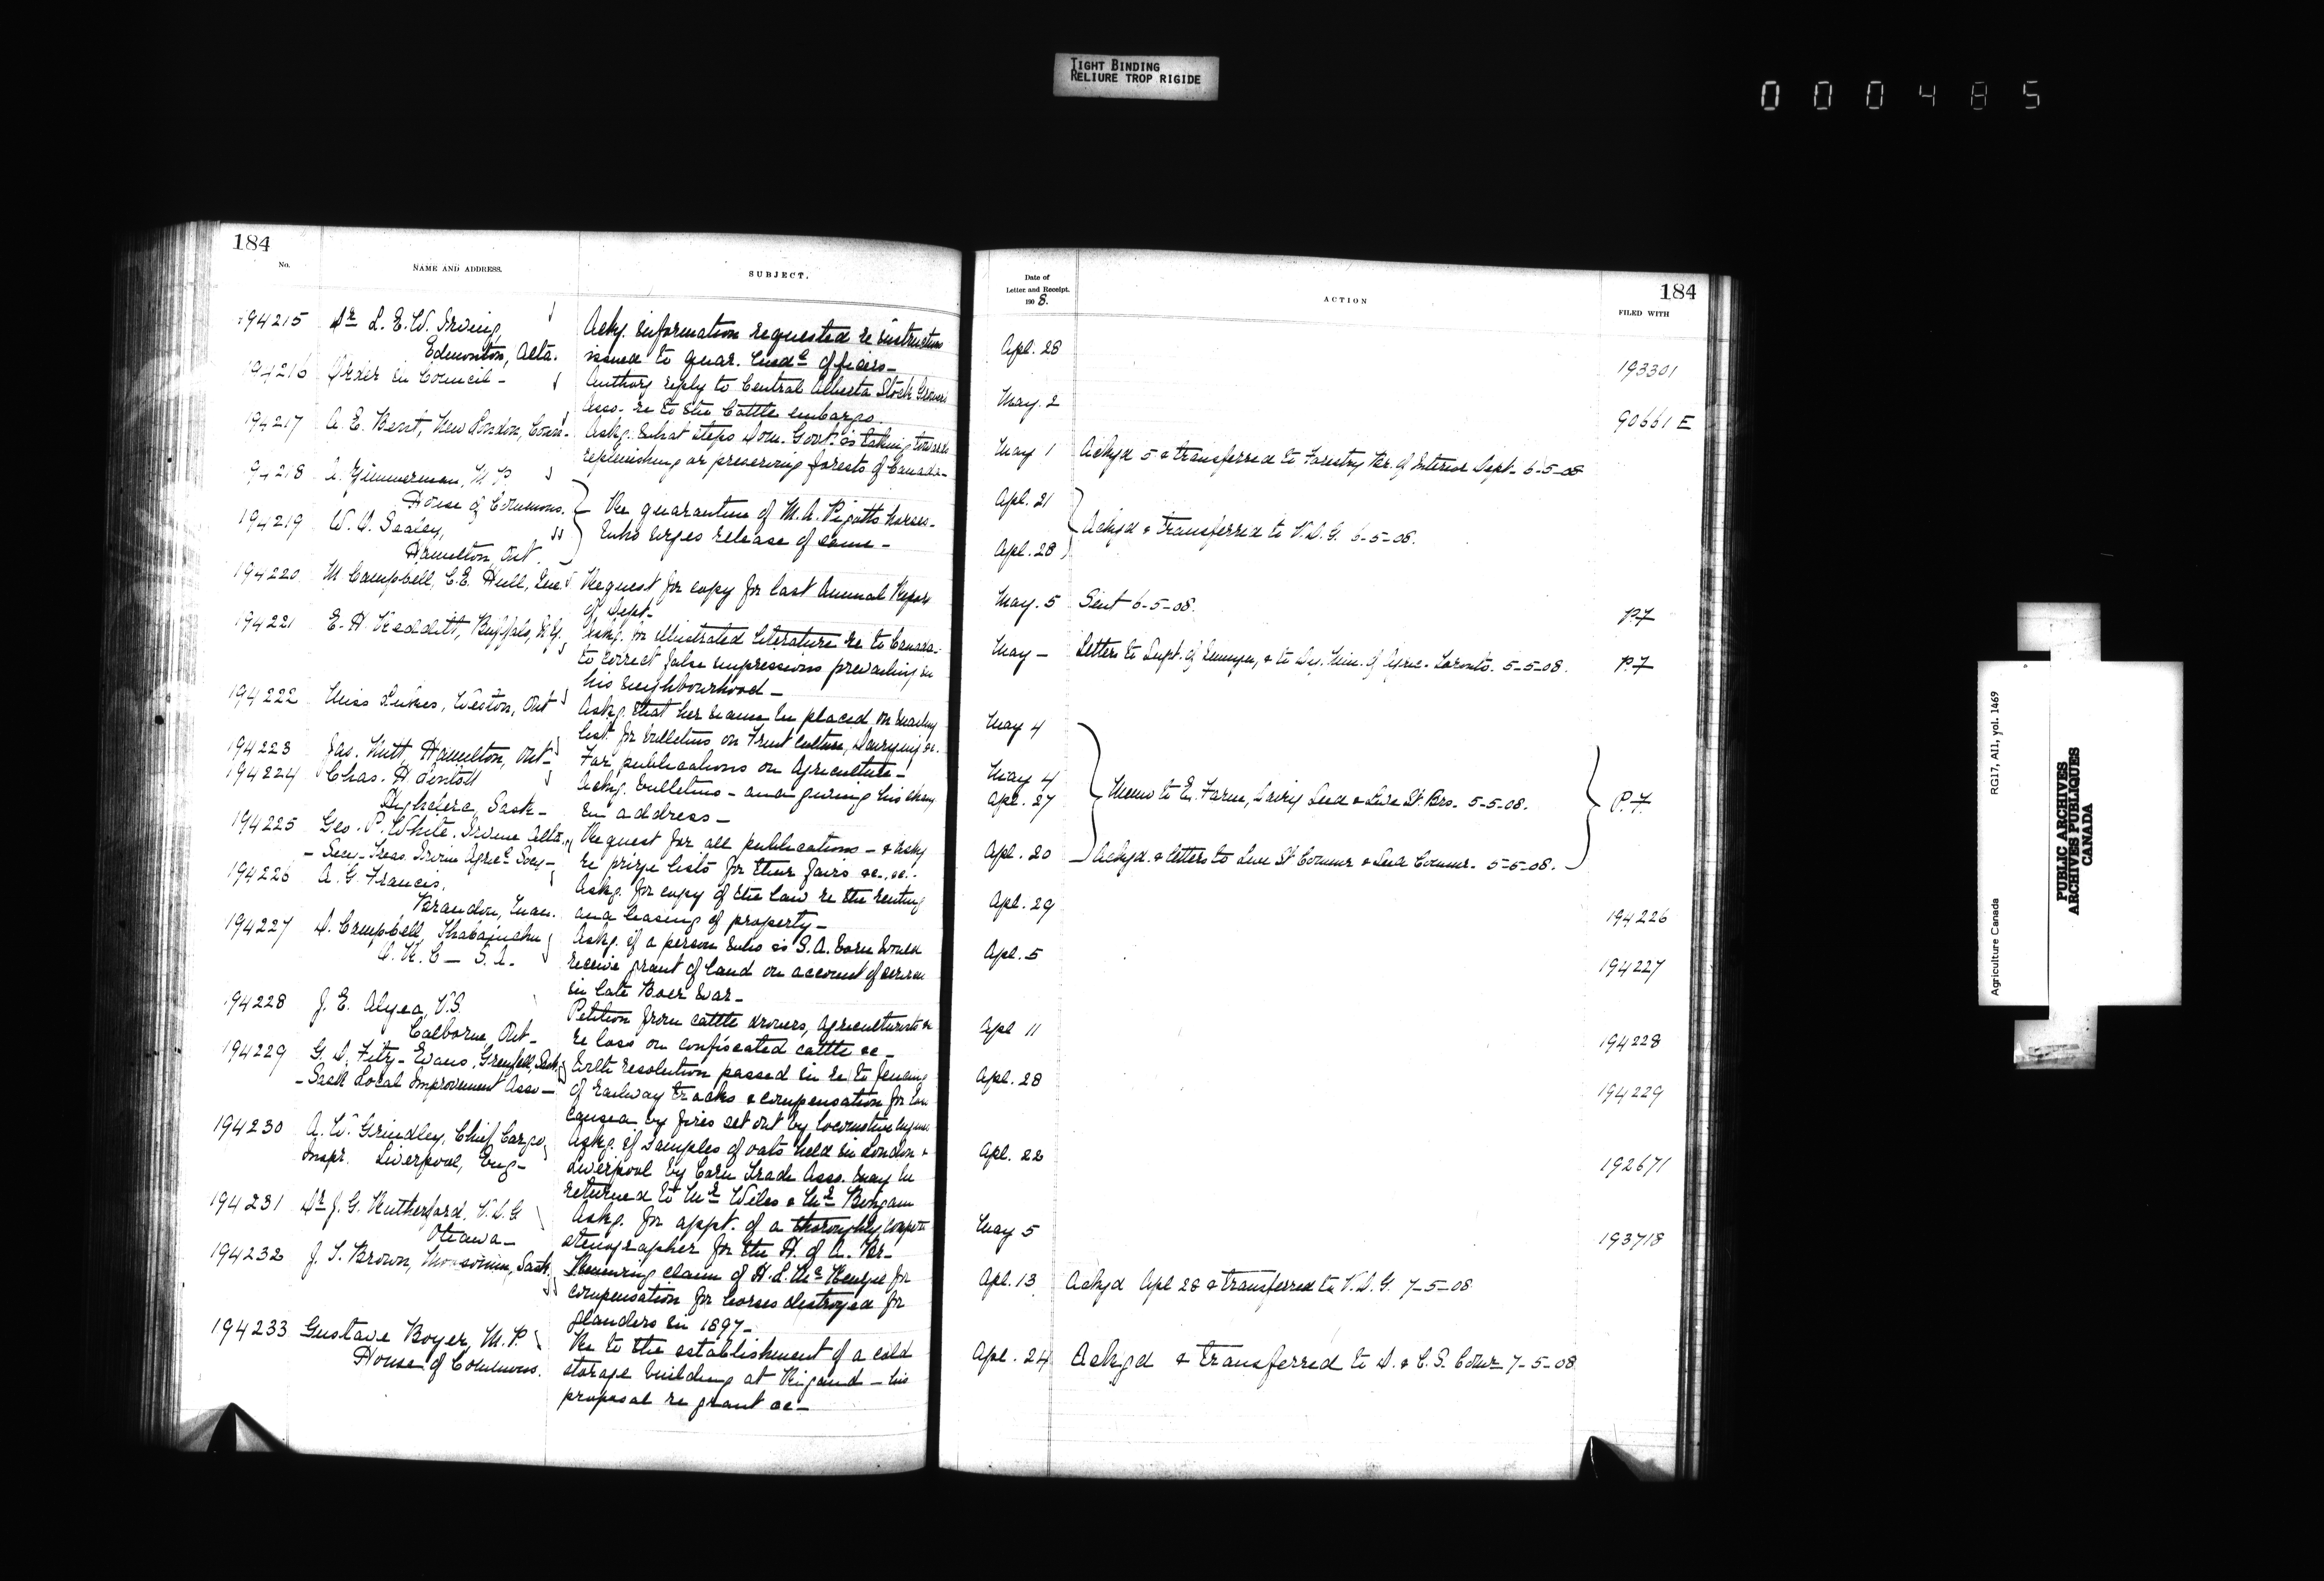 TIGHT BINDING
RELIURE TROP RIGIDE
000485
184
No.
NAME AND ADDRESS.
SUBJECT.
194215 Dr. L. E. W. Irving,
Edmonton, Alta.
Ackg. information requested re instructions
issued to quar. officers—
194216 Order in Council—
Authorg reply to Central Alberta Stock Growers
Asso. re to the Cattle embargo.
194217 A. E. Bent, New London, Conn.
Askg. what steps Dom. Govt. is taking towards
replenishing or preserving forests of Canada—
194218 A. Zimmerman, M.P.
House of Commons.
194219 W. O. Sealey,
Hamilton, Ont.
Re quarantine of M. A. Pigotts horses—
who urges release of same—
194220 M. Campbell, C.E. Hull, Que.
Request for copy for last Annual Report
of Dept.
194221 E. H. Buffalo, N.Y.
Askg. for illustrated literature re to Canada—
to correct false impressions prevailing in
his neighbourhood—
194222 Miss Weston, Ont
Askg. that her name be placed on mailing
list for bulletins on Fruit Culture, Dairying &c.
194223 Jas. Hamilton, Ont—
For publications on Agriculture—
194224 Chas. H.
Sask—
Ackg. bulletins — and giving his change
in address—
194225 Geo. P. White, Irvine Alta.
— Secy-Treas. Irvine Agricl Socy—
Request for all publications — & askg
re prize lists for their fairs &c. &c.
194226 A. G. Francis,
Brandon, Man.
Askg. for copy of the law re the renting
and leasing of property—
194227 D. Campbell Thabanchu
O. R. C — S. A.
Askg. if a person who is S. A. born would
receive grant of land on account of services
in late Boer War—
194228 J. E. Alyea, V.S.
Colborne, Ont—
Petition from cattle drovers, agriculturists &c
re loss on confiscated cattle &c—
194229 G. D. Fitz-Evans, Grenfell, Sask.
— Sask Local Improvement Asso—
With resolution passed in re to fencing
of railway tracks & compensation for loss
caused by fires set out by locomotive engines
194230 A. W. Grindley, Chief Cargo
Inspr. Liverpool, Eng—
Askg. if samples of oats held in London &
Liverpool by Corn Trade Asso. may be
returned to Mr. Wiles & Mr.
194231 Dr. J. G. Rutherford. V.D.G
Ottawa—
Askg. for appt. of a thoroughly compete
stenographer for the H. of A. Br—
194232 J. T. Brown, Moosomin, Sask.
Renewing claim of H. L. for
compensation for horses destroyed for
glanders in 1897—
194233 Gustave Boyer, M.P.
House of Commons.
Re to the establishment of a cold
storage building at Rigaud — his
proposal re grant &c—
Date of
Letter and Receipt.
1908.
ACTION
184
FILED WITH
Apl. 28 193301
May. 2 90661 E
May 1 Ackgd 5 & transferred to Forestry Br. of Interior Dept— 6-5-08
Apl. 21
Ackgd & transferred to V.D.G. 6-5-08.
Apl. 28
May. 5 Sent 6-5-08. P.7
May — Letters to Supt. of & to Dy. Min. of Agric. Toronto. 5-5-08. P.7
May 4
May 4
Apl. 27 Memo to Ex. Farm, Dairy Seed & Live St. Brs. 5-5-08. P.7.
Apl. 20 Ackgd. & letters to Live St Commr & Seed Commr. 5-5-08.
Apl. 29 194226
Apl. 5 194227
Apl 11 194228
Apl. 28 194229
Apl. 22 192671
May 5 193718
Apl. 13 Ackgd Apl 28 & transferred to V.D.G. 7-5-08
Apl. 24 Ackgd & transferred to D. & C.S. Comr 7-5-08
Agriculture Canada RG17, AII, vol. 1469
PUBLIC ARCHIVES
ARCHIVES PUBLIQUES
CANADA